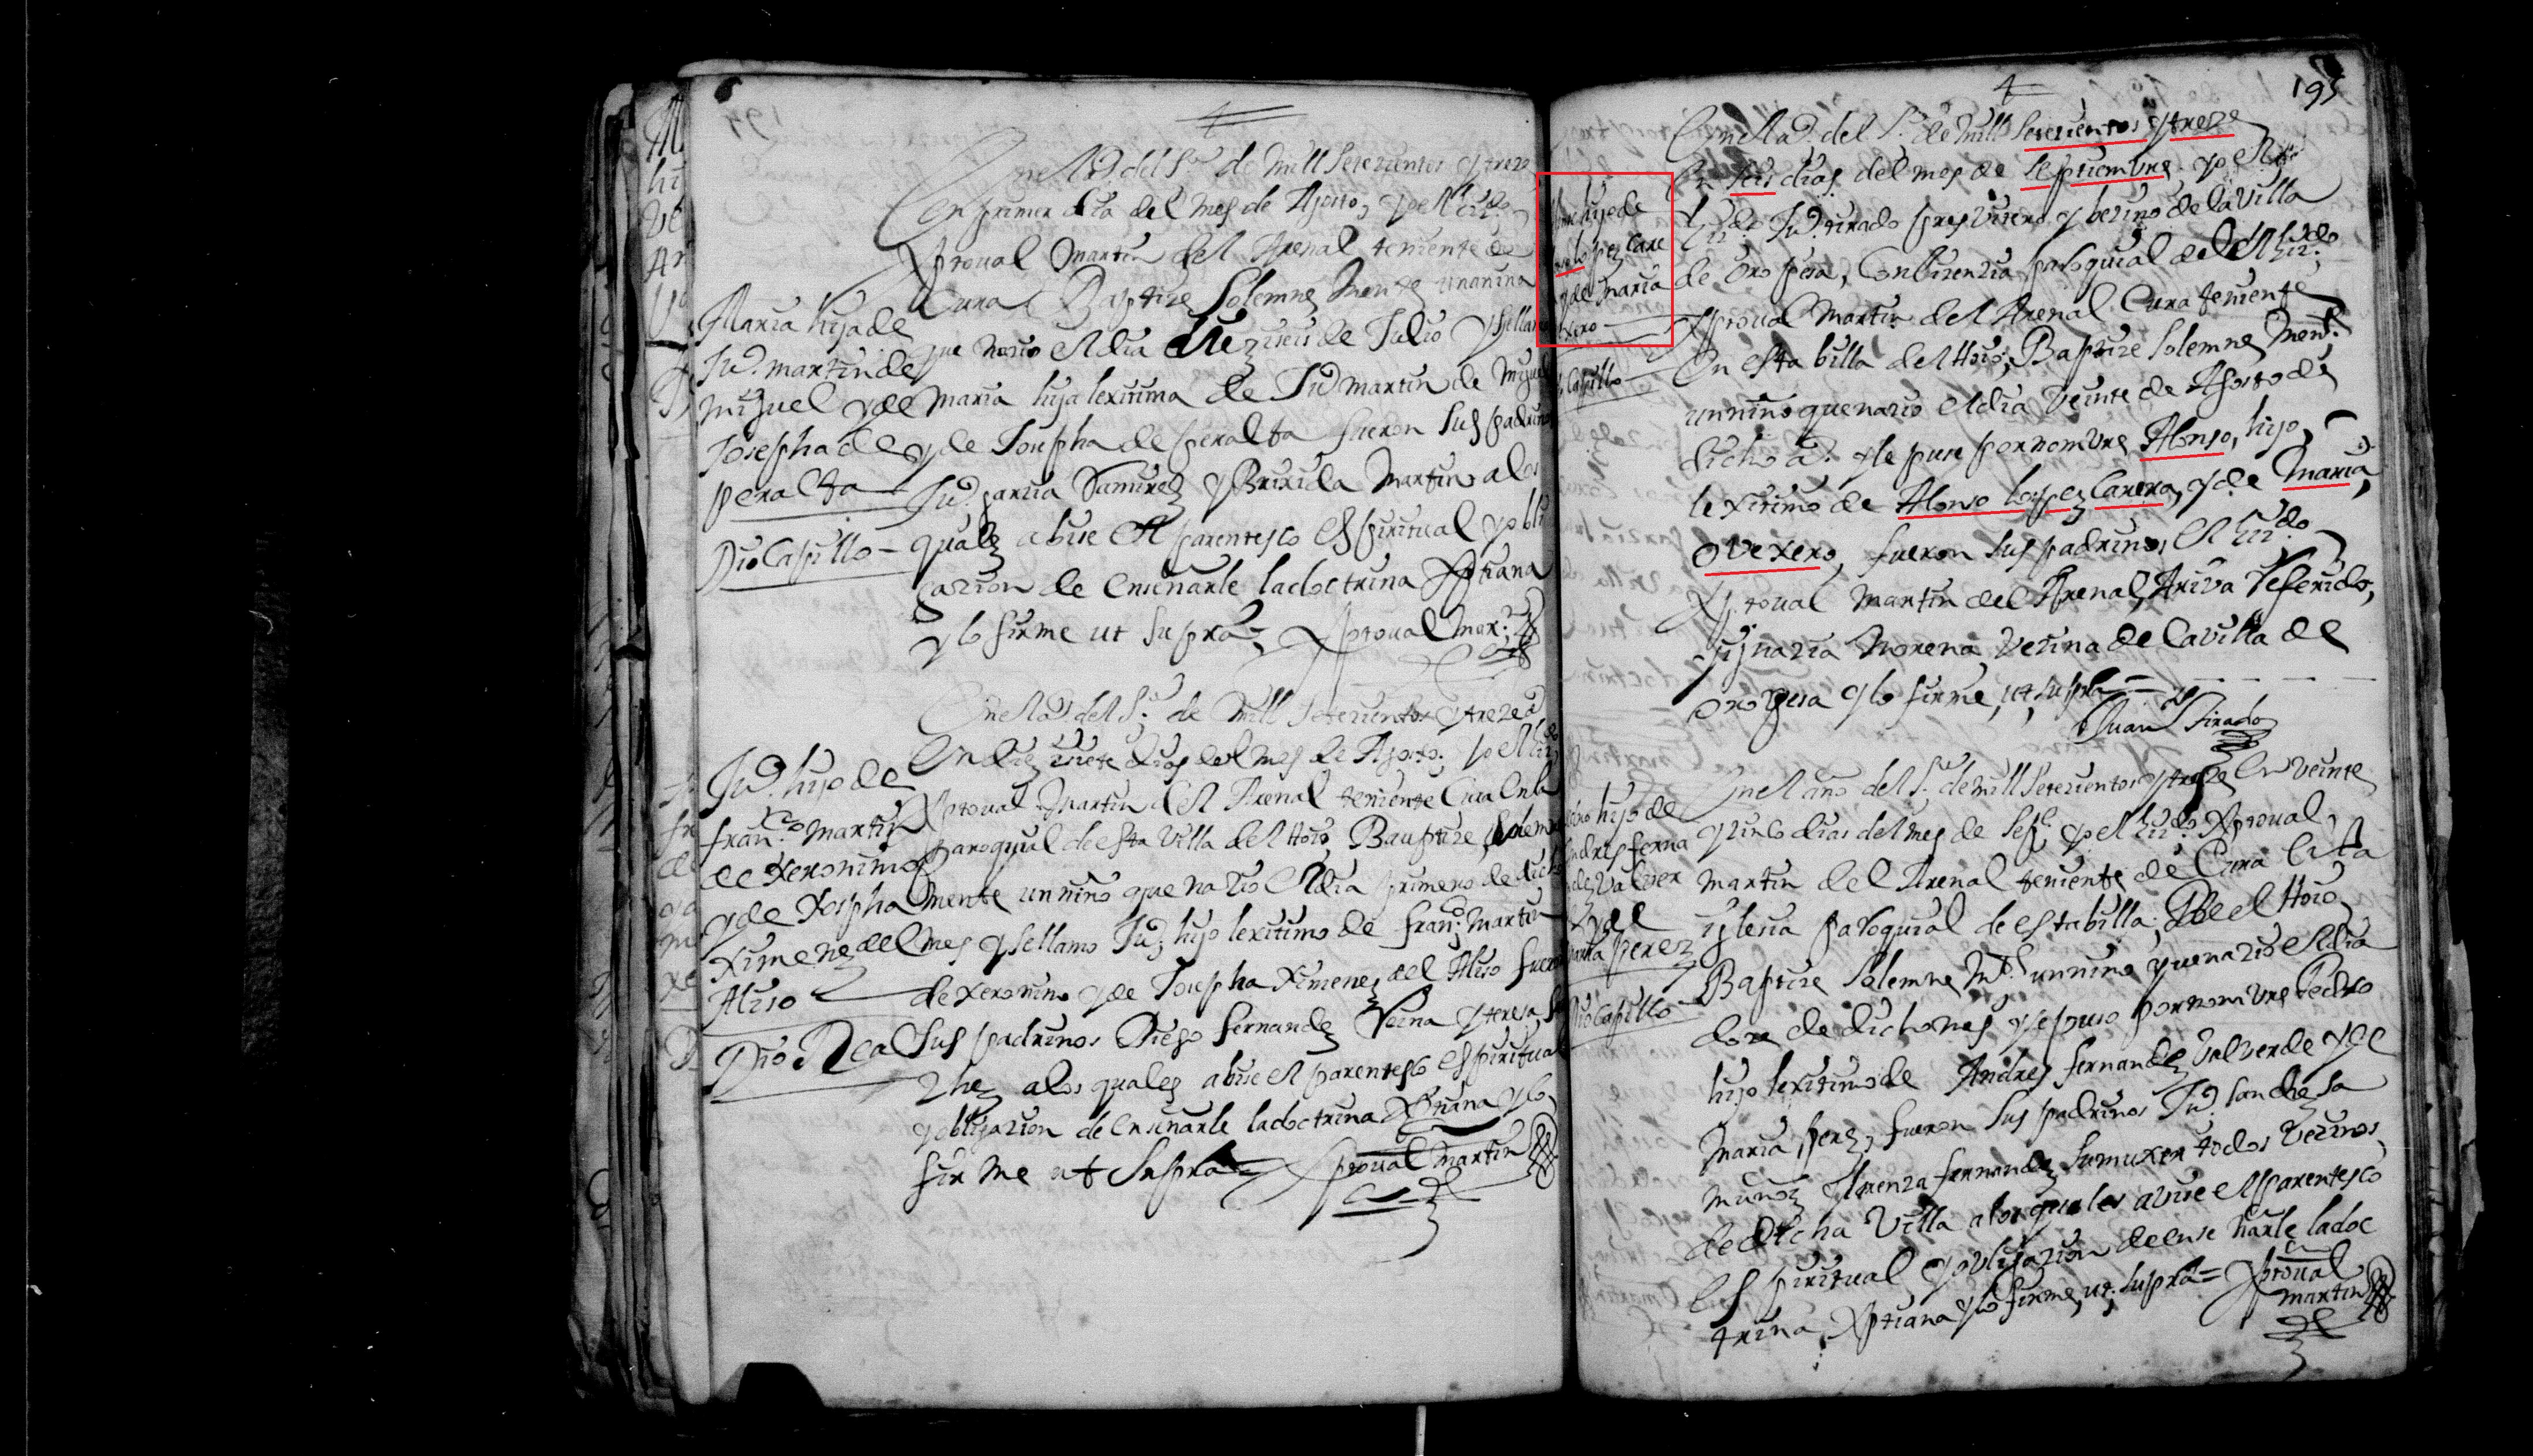 En el Año del Sr de Mill Setezientos y treze
En primer dia del Mes de Agosto, yo el Lizdo
Xptoual Martin del Arenal teniente de
Cura Baptize Solemne Mente una nina
que nazio el dia diez i seis de Julio y se llamo
Maria hija lexitima de Juo Martin de Miguel
y de Josepha de peralta fueron sus padrinos
Juo garzia Ramirez y Brixida Martin a los
quales abise el parentesco espiritual y obli
gazion de ensenarle la doctrina Xptiana
y lo firme ut supra = Xptoual Mar.
Maria hija de
Juo martin de
miguel y de
Josepha de
peralta
Dio Capillo
En el Año del Sr de Mill Setezientos y treze a
En diez i siete dias del mes de Agosto. yo el Lizdo
Xptoual Martin del Arenal teniente Cura en la
paroquial de esta Villa del Hoio Bauptize solemne
mente un nino que nazio el dia primero de dicho
mes y se llamo Juo hijo lexitimo de Franco Martin
de xeronimo y de Josepha Ximenez del Aliso fueron
sus padrinos Diego Fernandez Reina y teresa San
chez a los quales abise el parentesco espiritual
y obligazion de ensenarle la doctrina Xptiana y lo
firme ut supra = Xptoual Martin
Juo hijo de
franco martin
de xeronimo
y de Josepha
Ximenez del
Aliso
Dio Real
195
En el Ao del Sr de mill Setezientos y treze
En seis dias del mes de septiembre yo el
Lizdo Juo tirado presvitero y bezino de la Villa
de Oropesa, Con lizenzia paroquial del el Lizdo
Xptoual Martin del Arenal Cura teniente
En esta billa del Hoio, Baptize solemne Mente
un nino que nazio el dia veinte de Agosto de
dicho a. y le puse por nombre Alonso, hijo
lexitimo de Alonso lopez Carera, y de Maria,
ovexero, fueron sus padrinos, el Lizdo
Xptoual Martin del Arenal, Ariva Referido,
y ygnazia Morena Vezina de la villa de
oropesa y lo firme, ut supra =
Juan Tirado
hijo de
lopez Care
y de maria
xero
Capillo
En el año del Sr de mill Setezientos y treze En veinte
y zinco dias del mes de Sepe yo el Lizdo Xptoual
martin del Arenal teniente de Cura En la
iglesia paroquial de esta billa, De el Hoio
Baptize solemne Mte un nino que nazio el dia
doze de dicho mes y se puso por nombre Pedro
hijo lexitimo de Andres fernandez Valverde y de
Maria perez, fueron sus padrinos Juo sanchez
munoz y lorenza fernandez su muxer todos Vezinos
de dicha Villa a los quales avise el parentesco
Espiritual y obligazion de ense ñarle la doc
trina, Xptiana y lo firme, ut supra = Xptoual
martin
hijo de
Andres ferna
dez Valver
de y de
maria perez
Dio Capillo